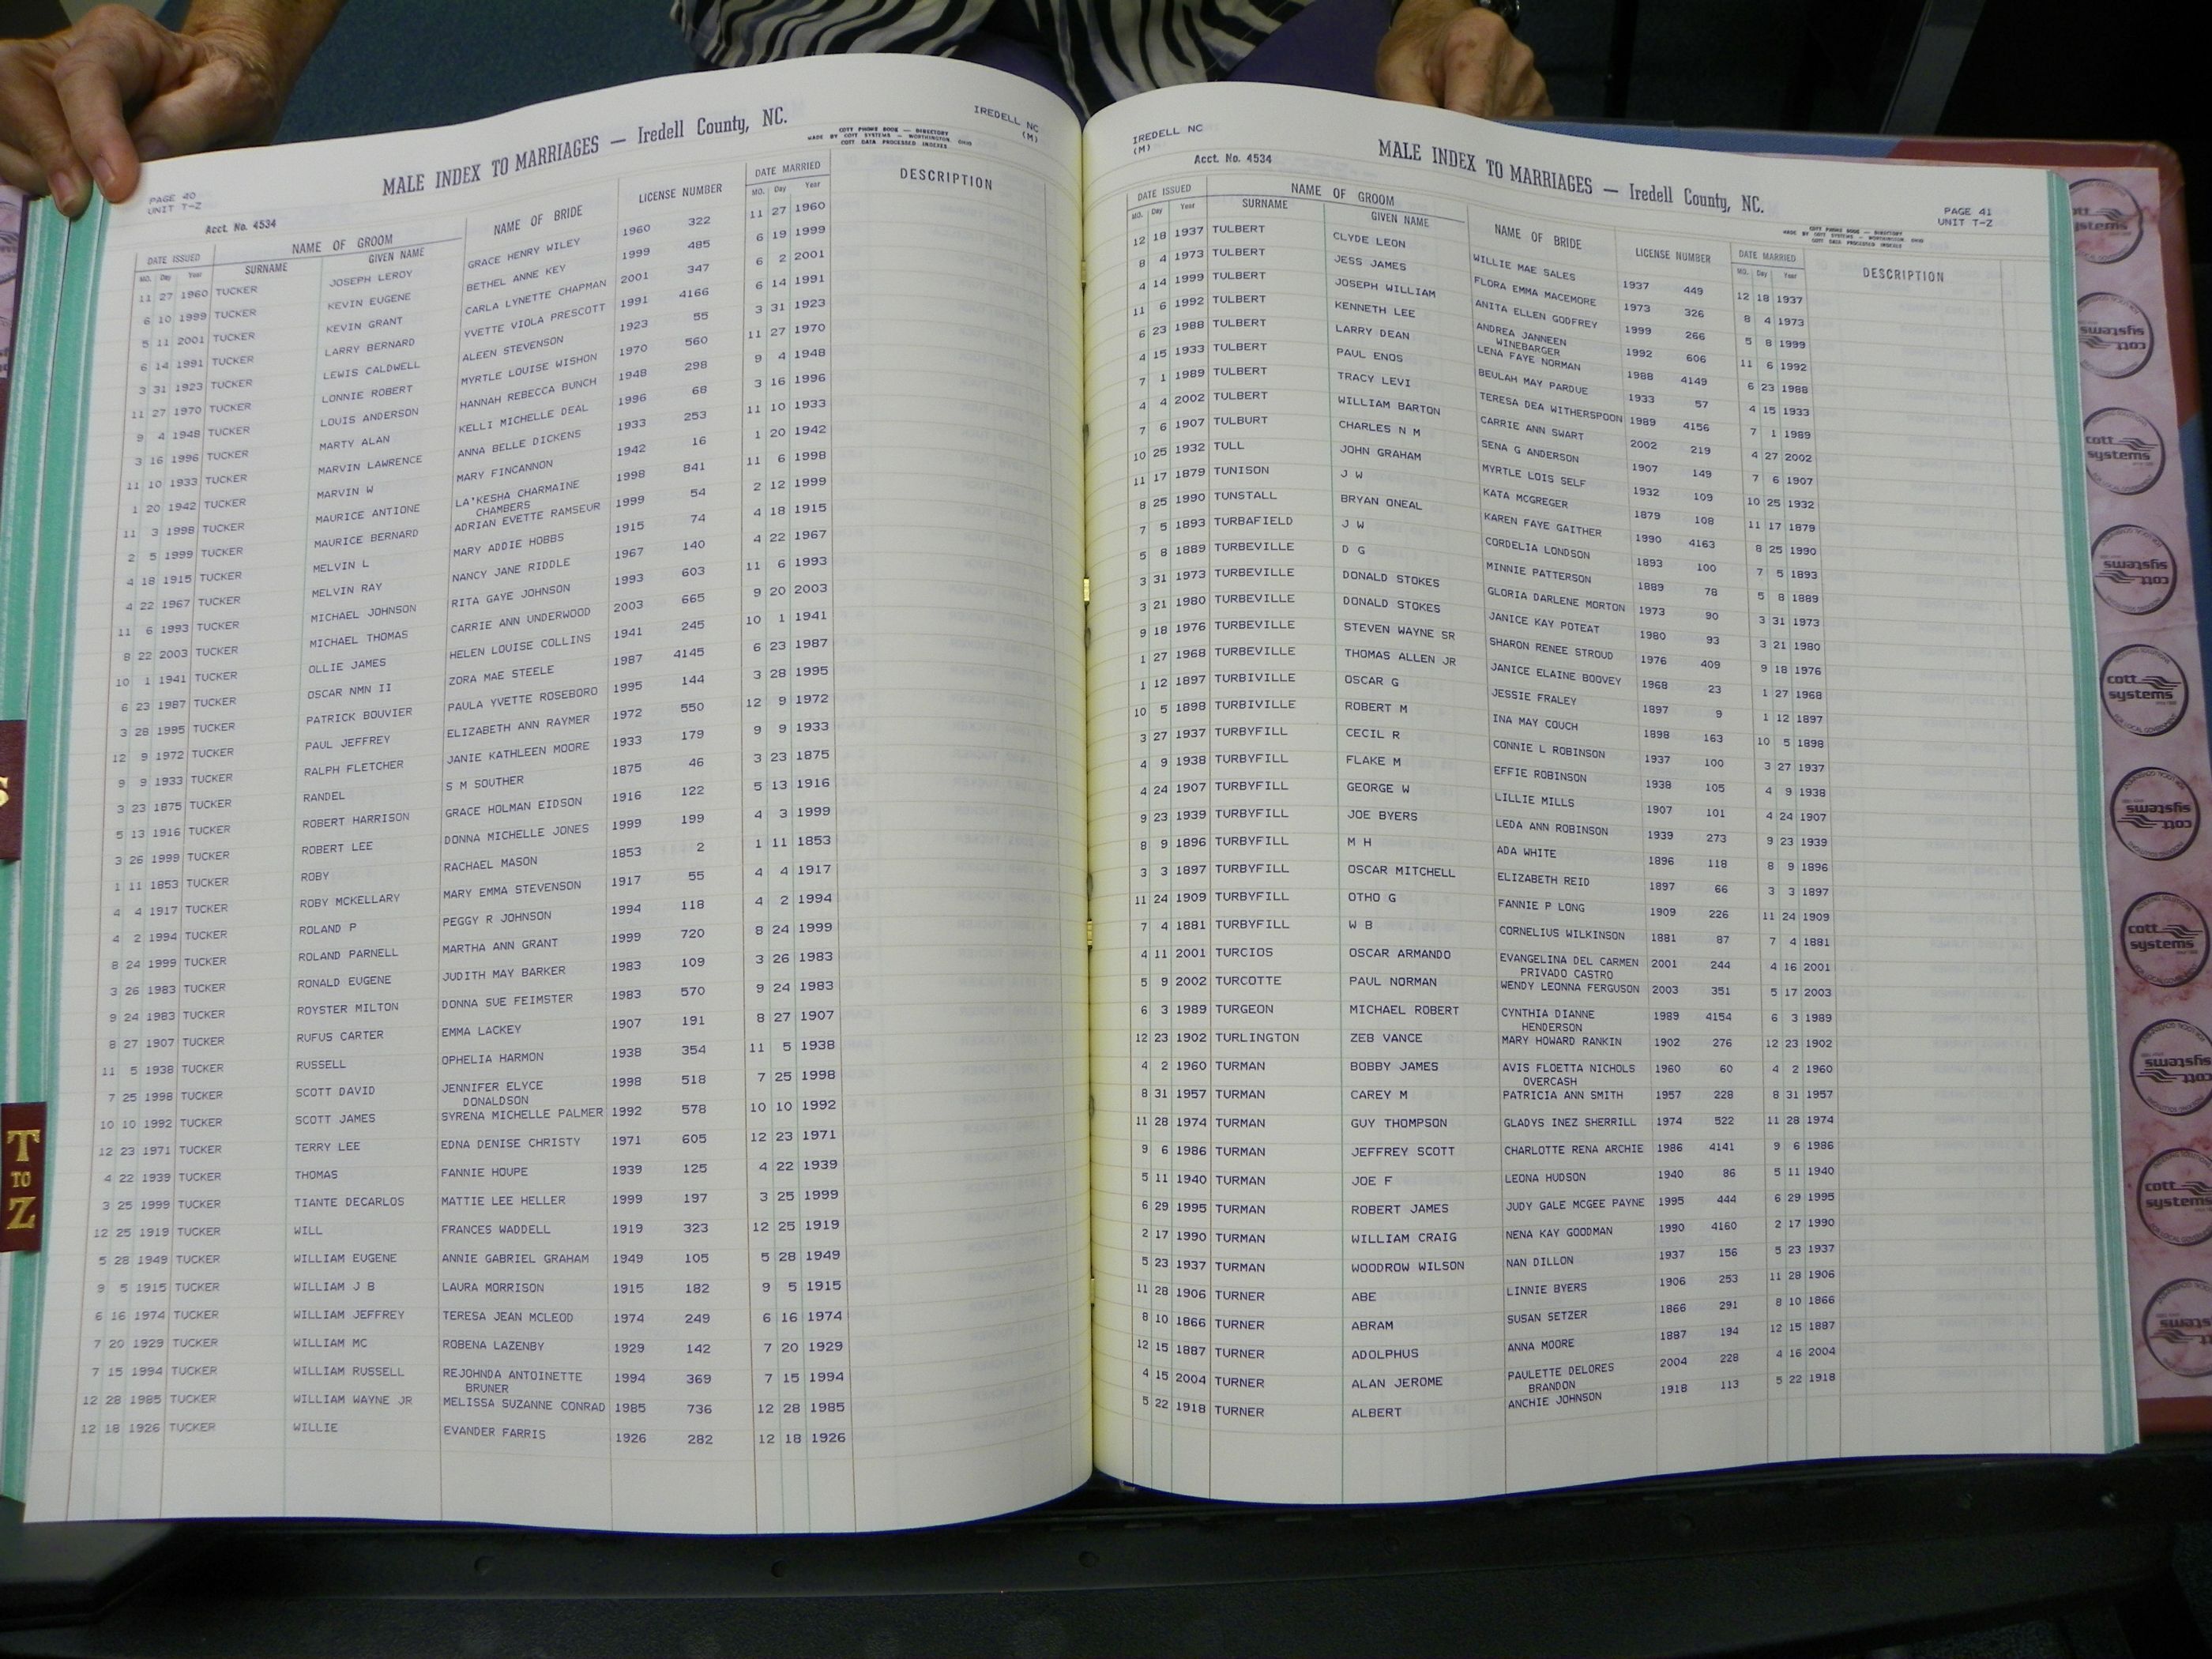 IREDELL NC
(M)
PAGE 40
UNIT T-Z
MALE INDEX TO MARRIAGES — Iredell County, NC.
COTT PHONE BOOK — DIRECTORY
MADE BY COTT SYSTEMS — WORTHINGTON OHIO
COTT DATA PROCESSED INDEXES
Acct. No. 4534
DATE ISSUED NAME OF GROOM NAME OF BRIDE LICENSE NUMBER DATE MARRIED DESCRIPTION
MO. Day Year SURNAME GIVEN NAME MO. Day Year
11 27 1960 TUCKER JOSEPH LEROY GRACE HENRY WILEY 1960 322 11 27 1960
6 10 1999 TUCKER KEVIN EUGENE BETHEL ANNE KEY 1999 485 6 19 1999
5 11 2001 TUCKER KEVIN GRANT CARLA LYNETTE CHAPMAN 2001 347 6 2 2001
6 14 1991 TUCKER LARRY BERNARD YVETTE VIOLA PRESCOTT 1991 4166 6 14 1991
3 31 1923 TUCKER LEWIS CALDWELL ALEEN STEVENSON 1923 55 3 31 1923
11 27 1970 TUCKER LONNIE ROBERT MYRTLE LOUISE WISHON 1970 560 11 27 1970
9 4 1948 TUCKER LOUIS ANDERSON HANNAH REBECCA BUNCH 1948 298 9 4 1948
3 16 1996 TUCKER MARTY ALAN KELLI MICHELLE DEAL 1996 68 3 16 1996
11 10 1933 TUCKER MARVIN LAWRENCE ANNA BELLE DICKENS 1933 253 11 10 1933
1 20 1942 TUCKER MARVIN W MARY FINCANNON 1942 16 1 20 1942
11 3 1998 TUCKER MAURICE ANTIONE LA'KESHA CHARMAINE 1998 841 11 6 1998
CHAMBERS
2 5 1999 TUCKER MAURICE BERNARD ADRIAN EVETTE RAMSEUR 1999 54 2 12 1999
4 18 1915 TUCKER MELVIN L MARY ADDIE HOBBS 1915 74 4 18 1915
4 22 1967 TUCKER MELVIN RAY NANCY JANE RIDDLE 1967 140 4 22 1967
11 6 1993 TUCKER MICHAEL JOHNSON RITA GAYE JOHNSON 1993 603 11 6 1993
8 22 2003 TUCKER MICHAEL THOMAS CARRIE ANN UNDERWOOD 2003 665 9 20 2003
10 1 1941 TUCKER OLLIE JAMES HELEN LOUISE COLLINS 1941 245 10 1 1941
6 23 1987 TUCKER OSCAR NMN II ZORA MAE STEELE 1987 4145 6 23 1987
3 28 1995 TUCKER PATRICK BOUVIER PAULA YVETTE ROSEBORO 1995 144 3 28 1995
12 9 1972 TUCKER PAUL JEFFREY ELIZABETH ANN RAYMER 1972 550 12 9 1972
9 9 1933 TUCKER RALPH FLETCHER JANIE KATHLEEN MOORE 1933 179 9 9 1933
3 23 1875 TUCKER RANDEL S M SOUTHER 1875 46 3 23 1875
5 13 1916 TUCKER ROBERT HARRISON GRACE HOLMAN EIDSON 1916 122 5 13 1916
3 26 1999 TUCKER ROBERT LEE DONNA MICHELLE JONES 1999 199 4 3 1999
1 11 1853 TUCKER ROBY RACHAEL MASON 1853 2 1 11 1853
4 4 1917 TUCKER ROBY MCKELLARY MARY EMMA STEVENSON 1917 55 4 4 1917
4 2 1994 TUCKER ROLAND P PEGGY R JOHNSON 1994 118 4 2 1994
8 24 1999 TUCKER ROLAND PARNELL MARTHA ANN GRANT 1999 720 8 24 1999
3 26 1983 TUCKER RONALD EUGENE JUDITH MAY BARKER 1983 109 3 26 1983
9 24 1983 TUCKER ROYSTER MILTON DONNA SUE FEIMSTER 1983 570 9 24 1983
8 27 1907 TUCKER RUFUS CARTER EMMA LACKEY 1907 191 8 27 1907
11 5 1938 TUCKER RUSSELL OPHELIA HARMON 1938 354 11 5 1938
7 25 1998 TUCKER SCOTT DAVID JENNIFER ELYCE 1998 518 7 25 1998
DONALDSON
10 10 1992 TUCKER SCOTT JAMES SYRENA MICHELLE PALMER 1992 578 10 10 1992
12 23 1971 TUCKER TERRY LEE EDNA DENISE CHRISTY 1971 605 12 23 1971
4 22 1939 TUCKER THOMAS FANNIE HOUPE 1939 125 4 22 1939
3 25 1999 TUCKER TIANTE DECARLOS MATTIE LEE HELLER 1999 197 3 25 1999
12 25 1919 TUCKER WILL FRANCES WADDELL 1919 323 12 25 1919
5 28 1949 TUCKER WILLIAM EUGENE ANNIE GABRIEL GRAHAM 1949 105 5 28 1949
9 5 1915 TUCKER WILLIAM J B LAURA MORRISON 1915 182 9 5 1915
6 16 1974 TUCKER WILLIAM JEFFREY TERESA JEAN MCLEOD 1974 249 6 16 1974
7 20 1929 TUCKER WILLIAM MC ROBENA LAZENBY 1929 142 7 20 1929
7 15 1994 TUCKER WILLIAM RUSSELL REJOHNDA ANTOINETTE 1994 369 7 15 1994
BRUNER
12 28 1985 TUCKER WILLIAM WAYNE JR MELISSA SUZANNE CONRAD 1985 736 12 28 1985
12 18 1926 TUCKER WILLIE EVANDER FARRIS 1926 282 12 18 1926
S
T
TO
Z
IREDELL NC
(M)
Acct. No. 4534
MALE INDEX TO MARRIAGES — Iredell County, NC.
PAGE 41
UNIT T-Z
COTT PHONE BOOK — DIRECTORY
MADE BY COTT SYSTEMS — WORTHINGTON OHIO
COTT DATA PROCESSED INDEXES
DATE ISSUED NAME OF GROOM NAME OF BRIDE LICENSE NUMBER DATE MARRIED DESCRIPTION
MO. Day Year SURNAME GIVEN NAME MO. Day Year
12 18 1937 TULBERT CLYDE LEON WILLIE MAE SALES 1937 449 12 18 1937
8 4 1973 TULBERT JESS JAMES FLORA EMMA MACEMORE 1973 326 8 4 1973
4 14 1999 TULBERT JOSEPH WILLIAM ANITA ELLEN GODFREY 1999 266 5 8 1999
11 6 1992 TULBERT KENNETH LEE ANDREA JANNEEN 1992 606 11 6 1992
WINEBARGER
6 23 1988 TULBERT LARRY DEAN LENA FAYE NORMAN 1988 4149 6 23 1988
4 15 1933 TULBERT PAUL ENOS BEULAH MAY PARDUE 1933 57 4 15 1933
7 1 1989 TULBERT TRACY LEVI TERESA DEA WITHERSPOON 1989 4156 7 1 1989
4 4 2002 TULBERT WILLIAM BARTON CARRIE ANN SWART 2002 219 4 27 2002
7 6 1907 TULBURT CHARLES N M SENA G ANDERSON 1907 149 7 6 1907
10 25 1932 TULL JOHN GRAHAM MYRTLE LOIS SELF 1932 109 10 25 1932
11 17 1879 TUNISON J W KATA MCGREGER 1879 108 11 17 1879
8 25 1990 TUNSTALL BRYAN ONEAL KAREN FAYE GAITHER 1990 4163 8 25 1990
7 5 1893 TURBAFIELD J W CORDELIA LONDSON 1893 100 7 5 1893
5 8 1889 TURBEVILLE D G MINNIE PATTERSON 1889 78 5 8 1889
3 31 1973 TURBEVILLE DONALD STOKES GLORIA DARLENE MORTON 1973 90 3 31 1973
3 21 1980 TURBEVILLE DONALD STOKES JANICE KAY POTEAT 1980 93 3 21 1980
9 18 1976 TURBEVILLE STEVEN WAYNE SR SHARON RENEE STROUD 1976 409 9 18 1976
1 27 1968 TURBEVILLE THOMAS ALLEN JR JANICE ELAINE BOOVEY 1968 23 1 27 1968
1 12 1897 TURBIVILLE OSCAR G JESSIE FRALEY 1897 9 1 12 1897
10 5 1898 TURBIVILLE ROBERT M INA MAY COUCH 1898 163 10 5 1898
3 27 1937 TURBYFILL CECIL R CONNIE L ROBINSON 1937 100 3 27 1937
4 9 1938 TURBYFILL FLAKE M EFFIE ROBINSON 1938 105 4 9 1938
4 24 1907 TURBYFILL GEORGE W LILLIE MILLS 1907 101 4 24 1907
9 23 1939 TURBYFILL JOE BYERS LEDA ANN ROBINSON 1939 273 9 23 1939
8 9 1896 TURBYFILL M H ADA WHITE 1896 118 8 9 1896
3 3 1897 TURBYFILL OSCAR MITCHELL ELIZABETH REID 1897 66 3 3 1897
11 24 1909 TURBYFILL OTHO G FANNIE P LONG 1909 226 11 24 1909
7 4 1881 TURBYFILL W B CORNELIUS WILKINSON 1881 87 7 4 1881
4 11 2001 TURCIOS OSCAR ARMANDO EVANGELINA DEL CARMEN 2001 244 4 16 2001
PRIVADO CASTRO
5 9 2002 TURCOTTE PAUL NORMAN WENDY LEONNA FERGUSON 2003 351 5 17 2003
6 3 1989 TURGEON MICHAEL ROBERT CYNTHIA DIANNE 1989 4154 6 3 1989
HENDERSON
12 23 1902 TURLINGTON ZEB VANCE MARY HOWARD RANKIN 1902 276 12 23 1902
4 2 1960 TURMAN BOBBY JAMES AVIS FLOETTA NICHOLS 1960 60 4 2 1960
OVERCASH
8 31 1957 TURMAN CAREY M PATRICIA ANN SMITH 1957 228 8 31 1957
11 28 1974 TURMAN GUY THOMPSON GLADYS INEZ SHERRILL 1974 522 11 28 1974
9 6 1986 TURMAN JEFFREY SCOTT CHARLOTTE RENA ARCHIE 1986 4141 9 6 1986
5 11 1940 TURMAN JOE F LEONA HUDSON 1940 86 5 11 1940
6 29 1995 TURMAN ROBERT JAMES JUDY GALE MCGEE PAYNE 1995 444 6 29 1995
2 17 1990 TURMAN WILLIAM CRAIG NENA KAY GOODMAN 1990 4160 2 17 1990
5 23 1937 TURMAN WOODROW WILSON NAN DILLON 1937 156 5 23 1937
11 28 1906 TURNER ABE LINNIE BYERS 1906 253 11 28 1906
8 10 1866 TURNER ABRAM SUSAN SETZER 1866 291 8 10 1866
12 15 1887 TURNER ADOLPHUS ANNA MOORE 1887 194 12 15 1887
4 15 2004 TURNER ALAN JEROME PAULETTE DELORES 2004 228 4 16 2004
BRANDON
5 22 1918 TURNER ALBERT ANCHIE JOHNSON 1918 113 5 22 1918
cott
systems
cott
systems
cott
systems
cott
systems
cott
systems
cott
systems
cott
systems